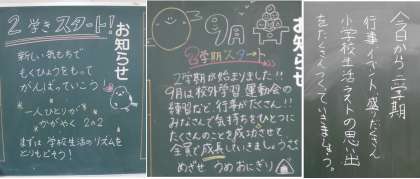 2学きスタート!
お知らせ
新しい気もちで
もくひょうをもって
がんばっていこう!
一人ひとりが
かがやく 2の2
まずは学校生活のリズムを
とりもどそう!
9月
お知らせ
2学期スタート
2学期が始まりました!!
9月は校外学習、運動会の
練習など、行事がたくさん!!
みんなで気持ちをひとつに
たくさんのことを成功させて
全員で成長していきましょうね
めざせ うめおにぎり
今日から二学期
行事、イベント、盛りだくさん
小学校生活ラストの思い出
をたくさんつくっていきましょう。